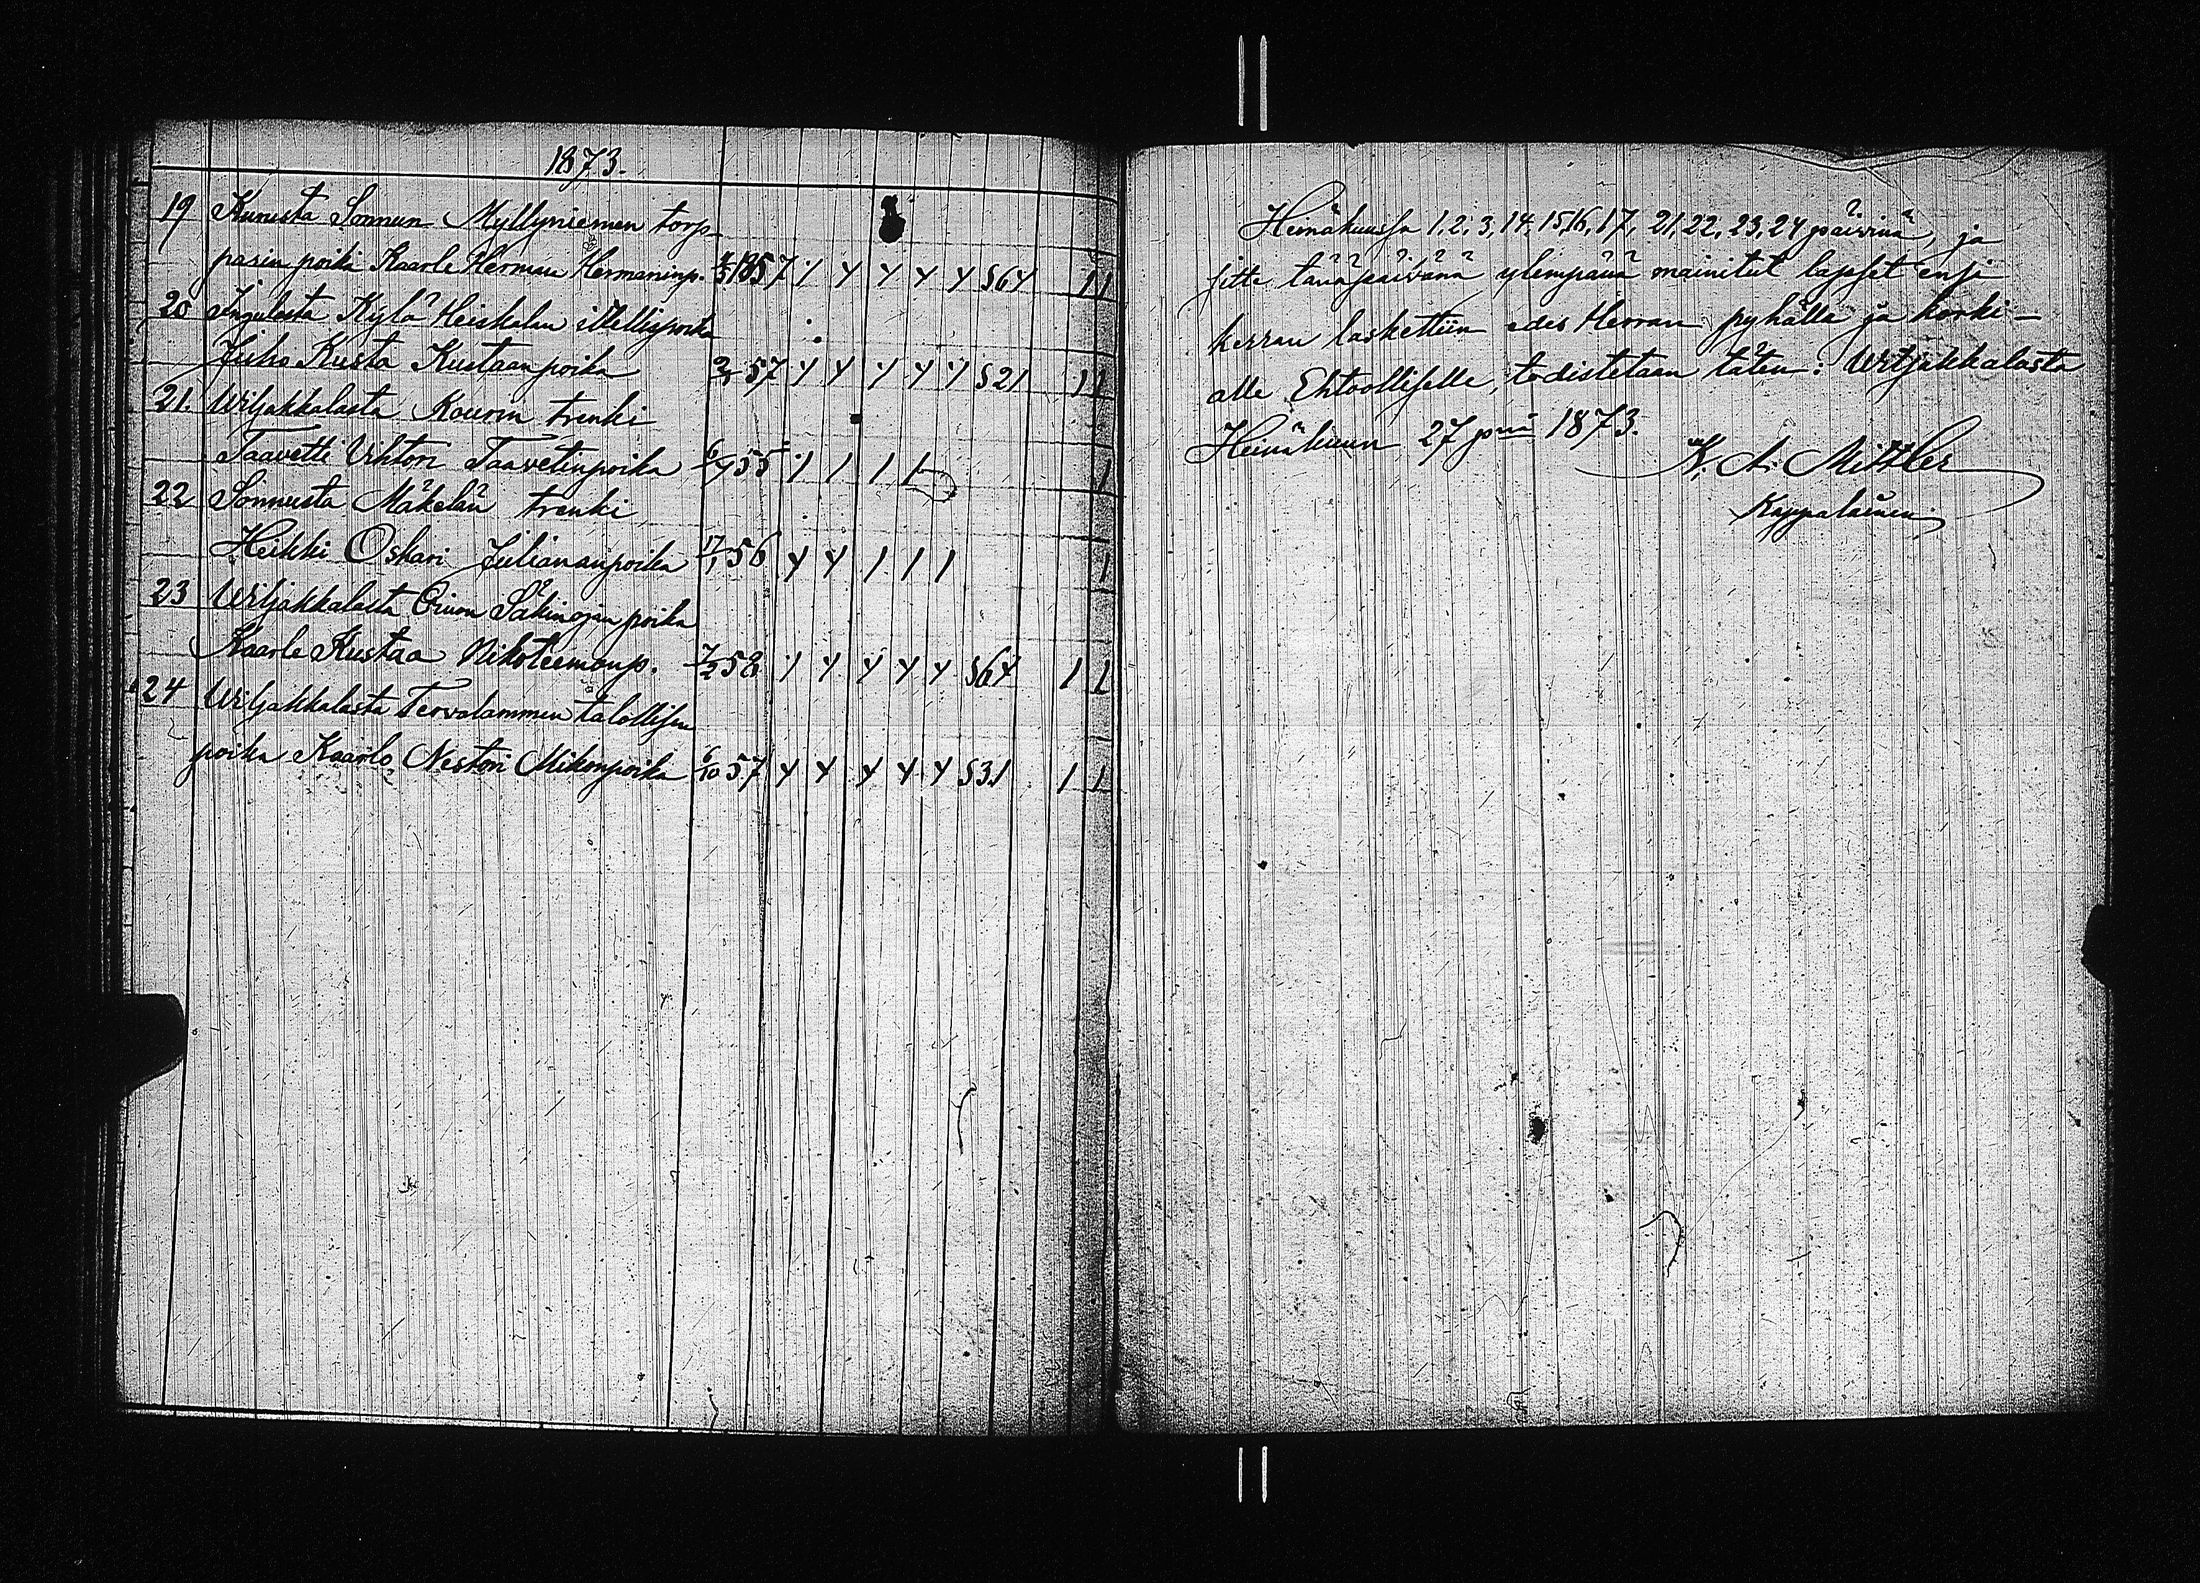 1873.
19 Kunnista Sonnun Myllyniemen torp-
parin poika Kaarle Herman Hermaninp. 1857 S64 1 1
20 Inkulasta Kylä Heiskalan itsellispoika
Juho Kusta Kustaanpoika 57 S21 1 1
21. Wiljakkalasta Kouron trenki
Taavetti Vihtori Taavetinpoika 6/4 55 1 1 1 1 1
22 Sonnusta Mäkelän trenki
Heikki Oskari Juliananpoika 17/1 56 1 1 1 1
23 Wiljakkalasta Säkinojan poika
Kaarle Kustaa Nikoteemonp. 7/2 58 S64 1 1
24 Wiljakkalasta Tervalammen talollisen
poika Kaarlo Nestori Mikonpoika 6/10 57 S31 1 1
Heinäkuussa 1, 2, 3, 14, 15, 16, 17, 21, 22, 23, 24 päivinä, ja
sitte tänäpäivänä ylempänä mainitut lapset ensi
kerran laskettiin edes Herran pyhälle ja korki-
alle Ehtoolliselle, todistetaan täten. Wiljakkalasta
Heinäkuun 27 pnä 1873.
K. A. Mittler
Kappalainen